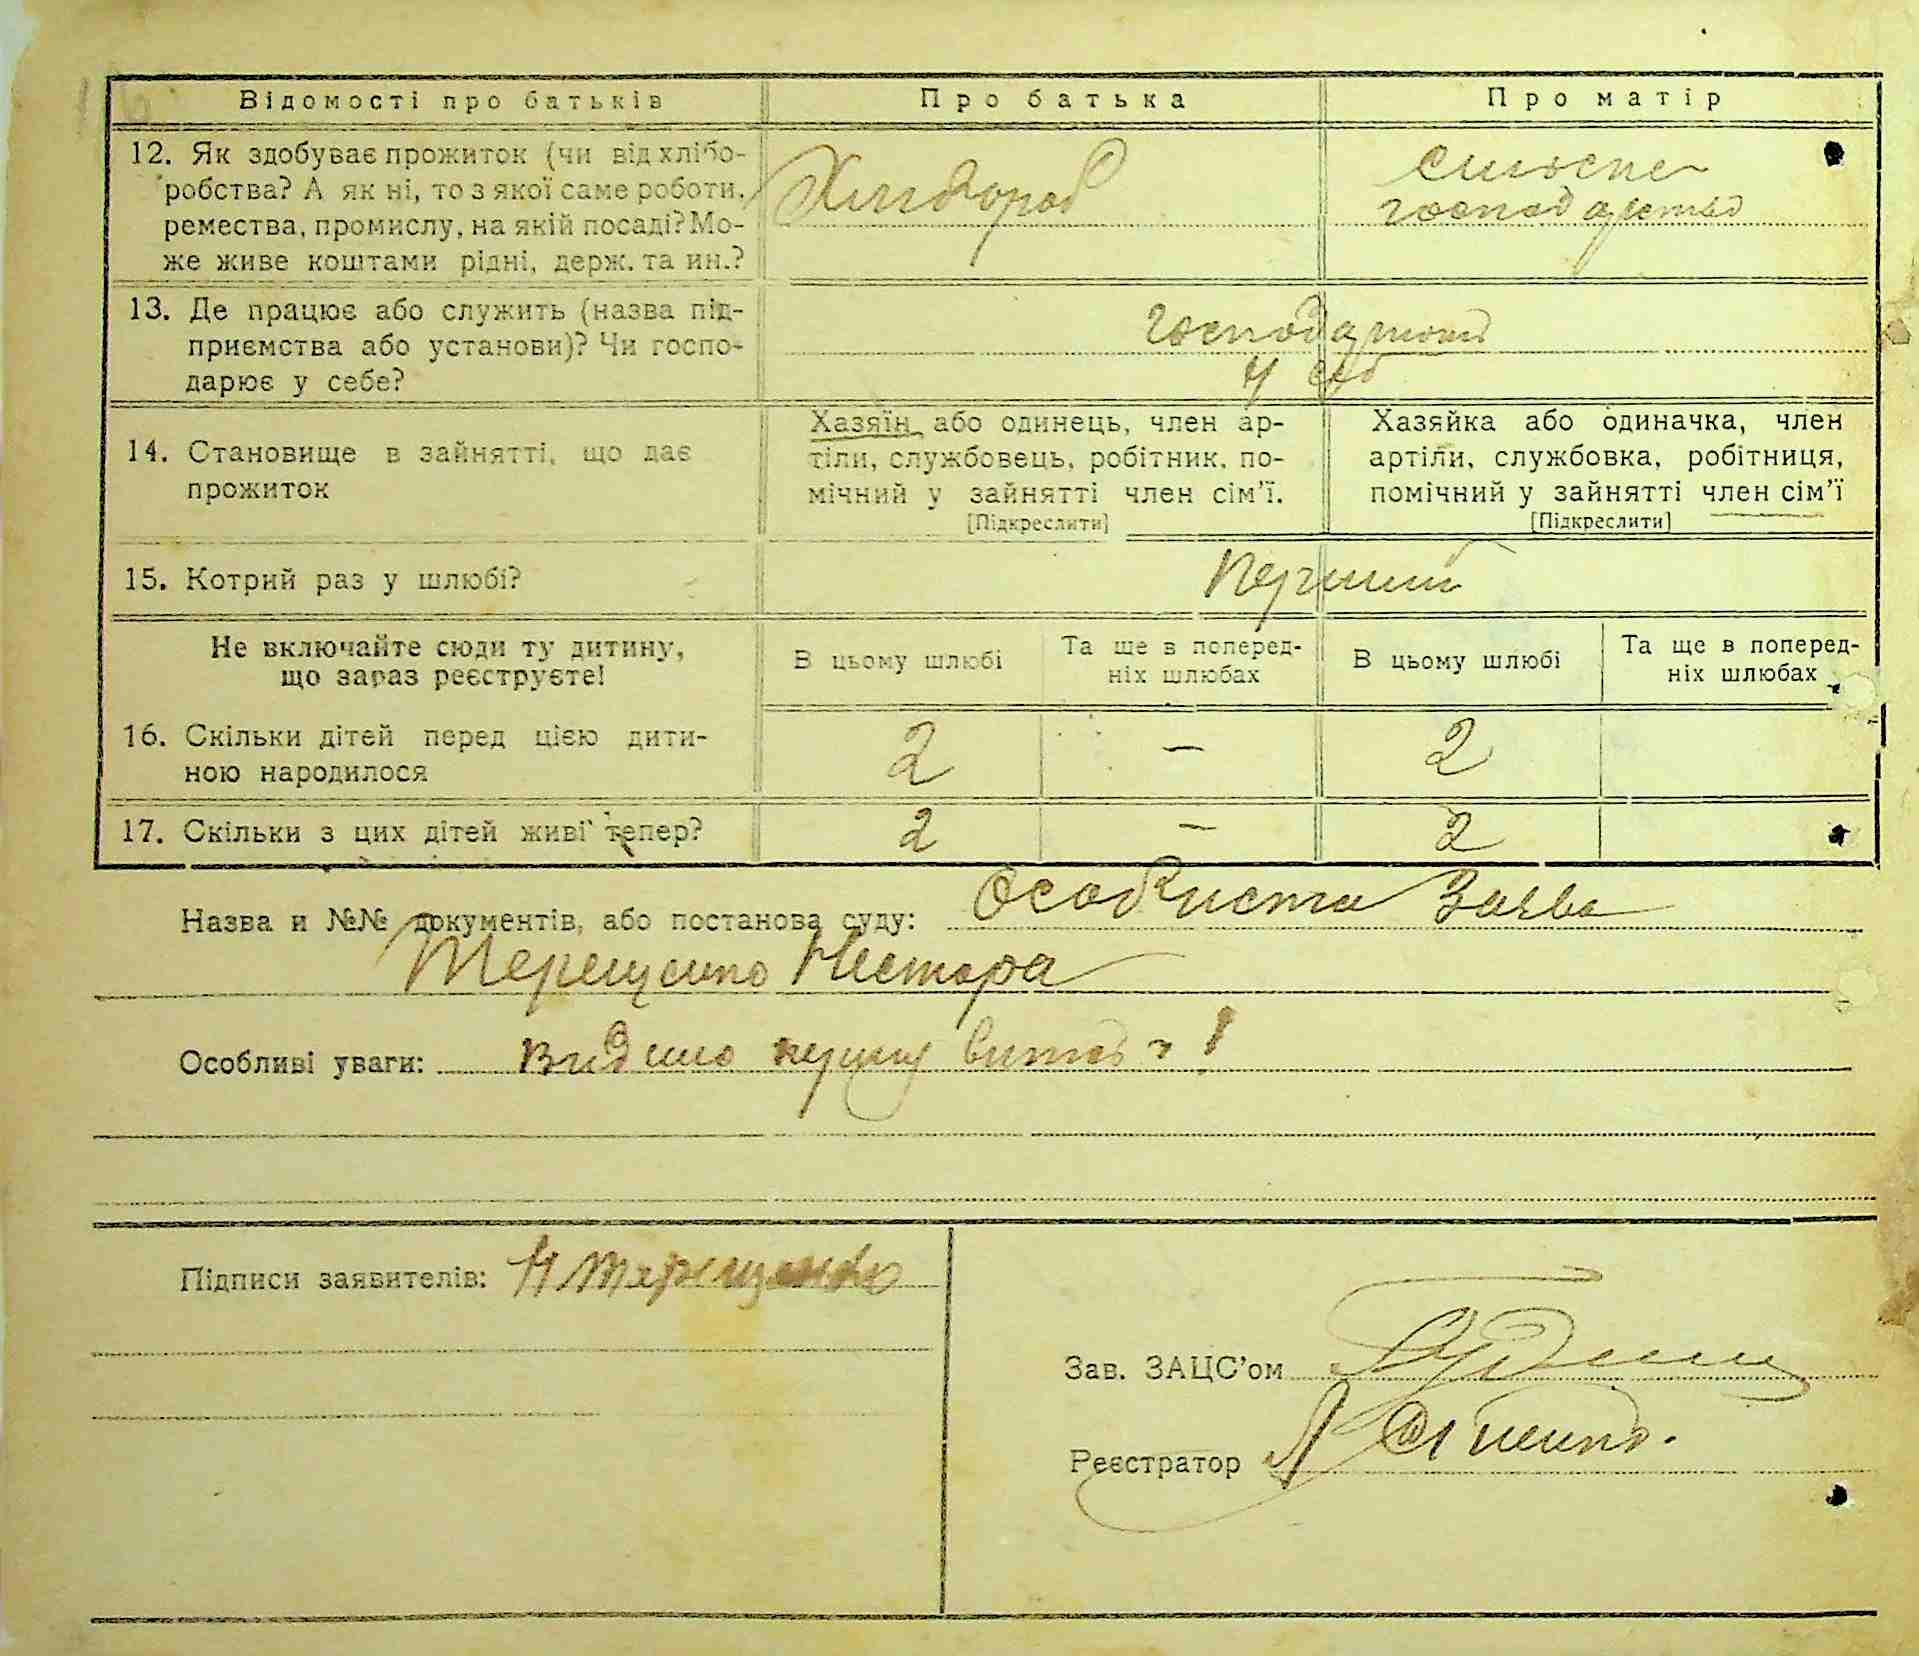 Відомості про батьків Про батька Про матір
12. Як здобуває прожиток (чи від хлібо-
робства? А як ні, то з якої саме роботи,
ремества, промислу, на якій посаді? Мо-
же живе коштами рідні, держ. та ин.?
Хлібороб
сільське
господарство
13. Де працює або служить (назва під-
приємства або установи)? Чи госпо-
дарює у себе?
у себе
14. Становище в зайнятті, що дає
прожиток
Хазяїн або одинець, член ар-
тіли, службовець, робітник, по-
мічний у зайнятті член сім'ї.
[Підкреслити]
Хазяйка або одиначка, член
артіли, службовка, робітниця,
помічний у зайнятті член сім'ї
[Підкреслити]
15. Котрий раз у шлюбі? Перший
Не включайте сюди ту дитину,
що зараз реєструєте!
В цьому шлюбі
Та ще в поперед-
ніх шлюбах
В цьому шлюбі
Та ще в поперед-
ніх шлюбах
16. Скільки дітей перед цією дити-
ною народилося
2 – 2
17. Скільки з цих дітей живі тепер? 2 – 2
Назва и №№ документів, або постанова суду: Особиста Заява
Терещенко Нестора
Особливі уваги: Видано першу
Підписи заявителів: Н Терещенко
Зав. ЗАЦС'ом
Реєстратор